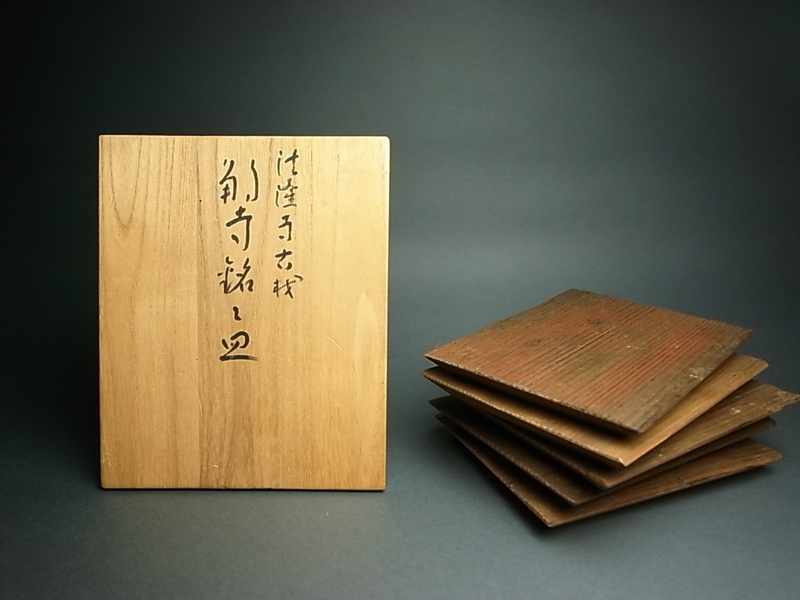 法隆寺古材
鵤寺銘々皿